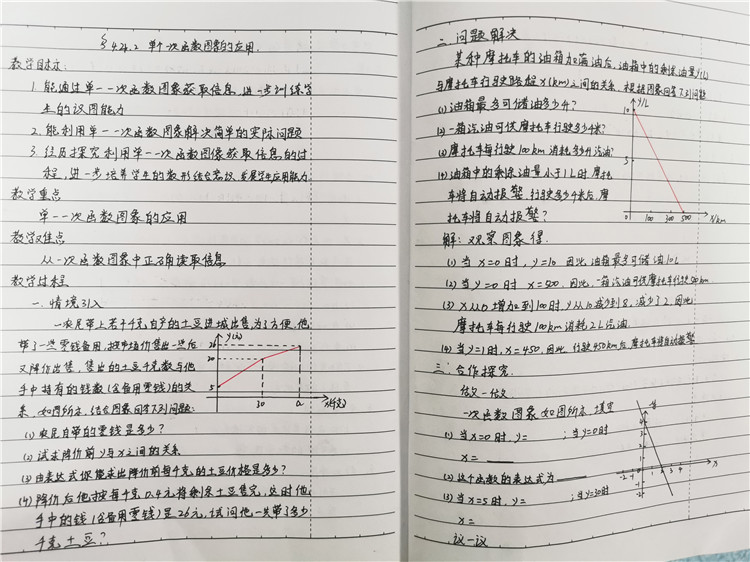 §4.4.2 单个一次函数图象的应用.
教学目标:
1. 能通过单一一次函数图象获取信息,进一步训练学
生的识图能力
2. 能利用单一一次函数图象解决简单的实际问题
3. 经历探究利用单一一次函数图像获取信息的过
程,进一步培养学生的数形结合意识,发展学生应用能力
教学重点
单一一次函数图象的应用
教学难点
从一次函数图象中正确读取信息
教学过程
一. 情境引入
一农民带上若干千克自产的土豆进城出售,为了方便,他
带了一些零钱备用,按市场价售出一些后
又降价出售,售出的土豆千克数与他
手中持有的钱数(含备用零钱)的关
系,如图所示,结合图象回答下列问题:
y(元)
26
20
5
30
a
x(千克)
(1) 农民自带的零钱是多少?
(2) 试求降价前y与x之间的关系
(3) 由表达式你能求出降价前每千克的土豆价格是多少?
(4) 降价后他按每千克0.4元将剩余土豆售完,这时他
手中的钱(含备用零钱)是26元,试问他一共带了多少
千克土豆?
二. 问题解决
某种摩托车的油箱加满油后,油箱中的剩余油量y(L)
与摩托车行驶路程x(km)之间的关系,根据图象回答下列问题
(1) 油箱最多可储油多少?
(2) 一箱汽油可供摩托车行驶多少千米?
(3) 摩托车每行驶100km消耗多少升汽油?
(4) 油箱中的剩余油量小于1L时,摩托
车将自动报警,行驶多少千米后,摩
托车将自动报警?
y/L
10
5
0
100
300
500
x/km
解: 观察图象得.
(1) 当x=0时,y=10 因此,油箱最多可储油10L
(2) 当y=0时 x=500, 因此,一箱汽油可供摩托车行驶500km
(3) x从0增加到100时,y从10减少到8,减少了2,因此
摩托车每行驶100km消耗2L汽油.
(4) 当y=1时,x=450,因此,行驶450km后,摩托车将自动报警
三. 合作探究.
做一做
一次函数图象如图所示,填空
(1) 当x=0时,y= ;当y=0时
x=
(2) 这个函数的表达式为
(3) 当x=5时,y= ;当y=30时
x=
议一议
y
4
3
2
1
-2 -1
1 2 3 4
x
-1
-2